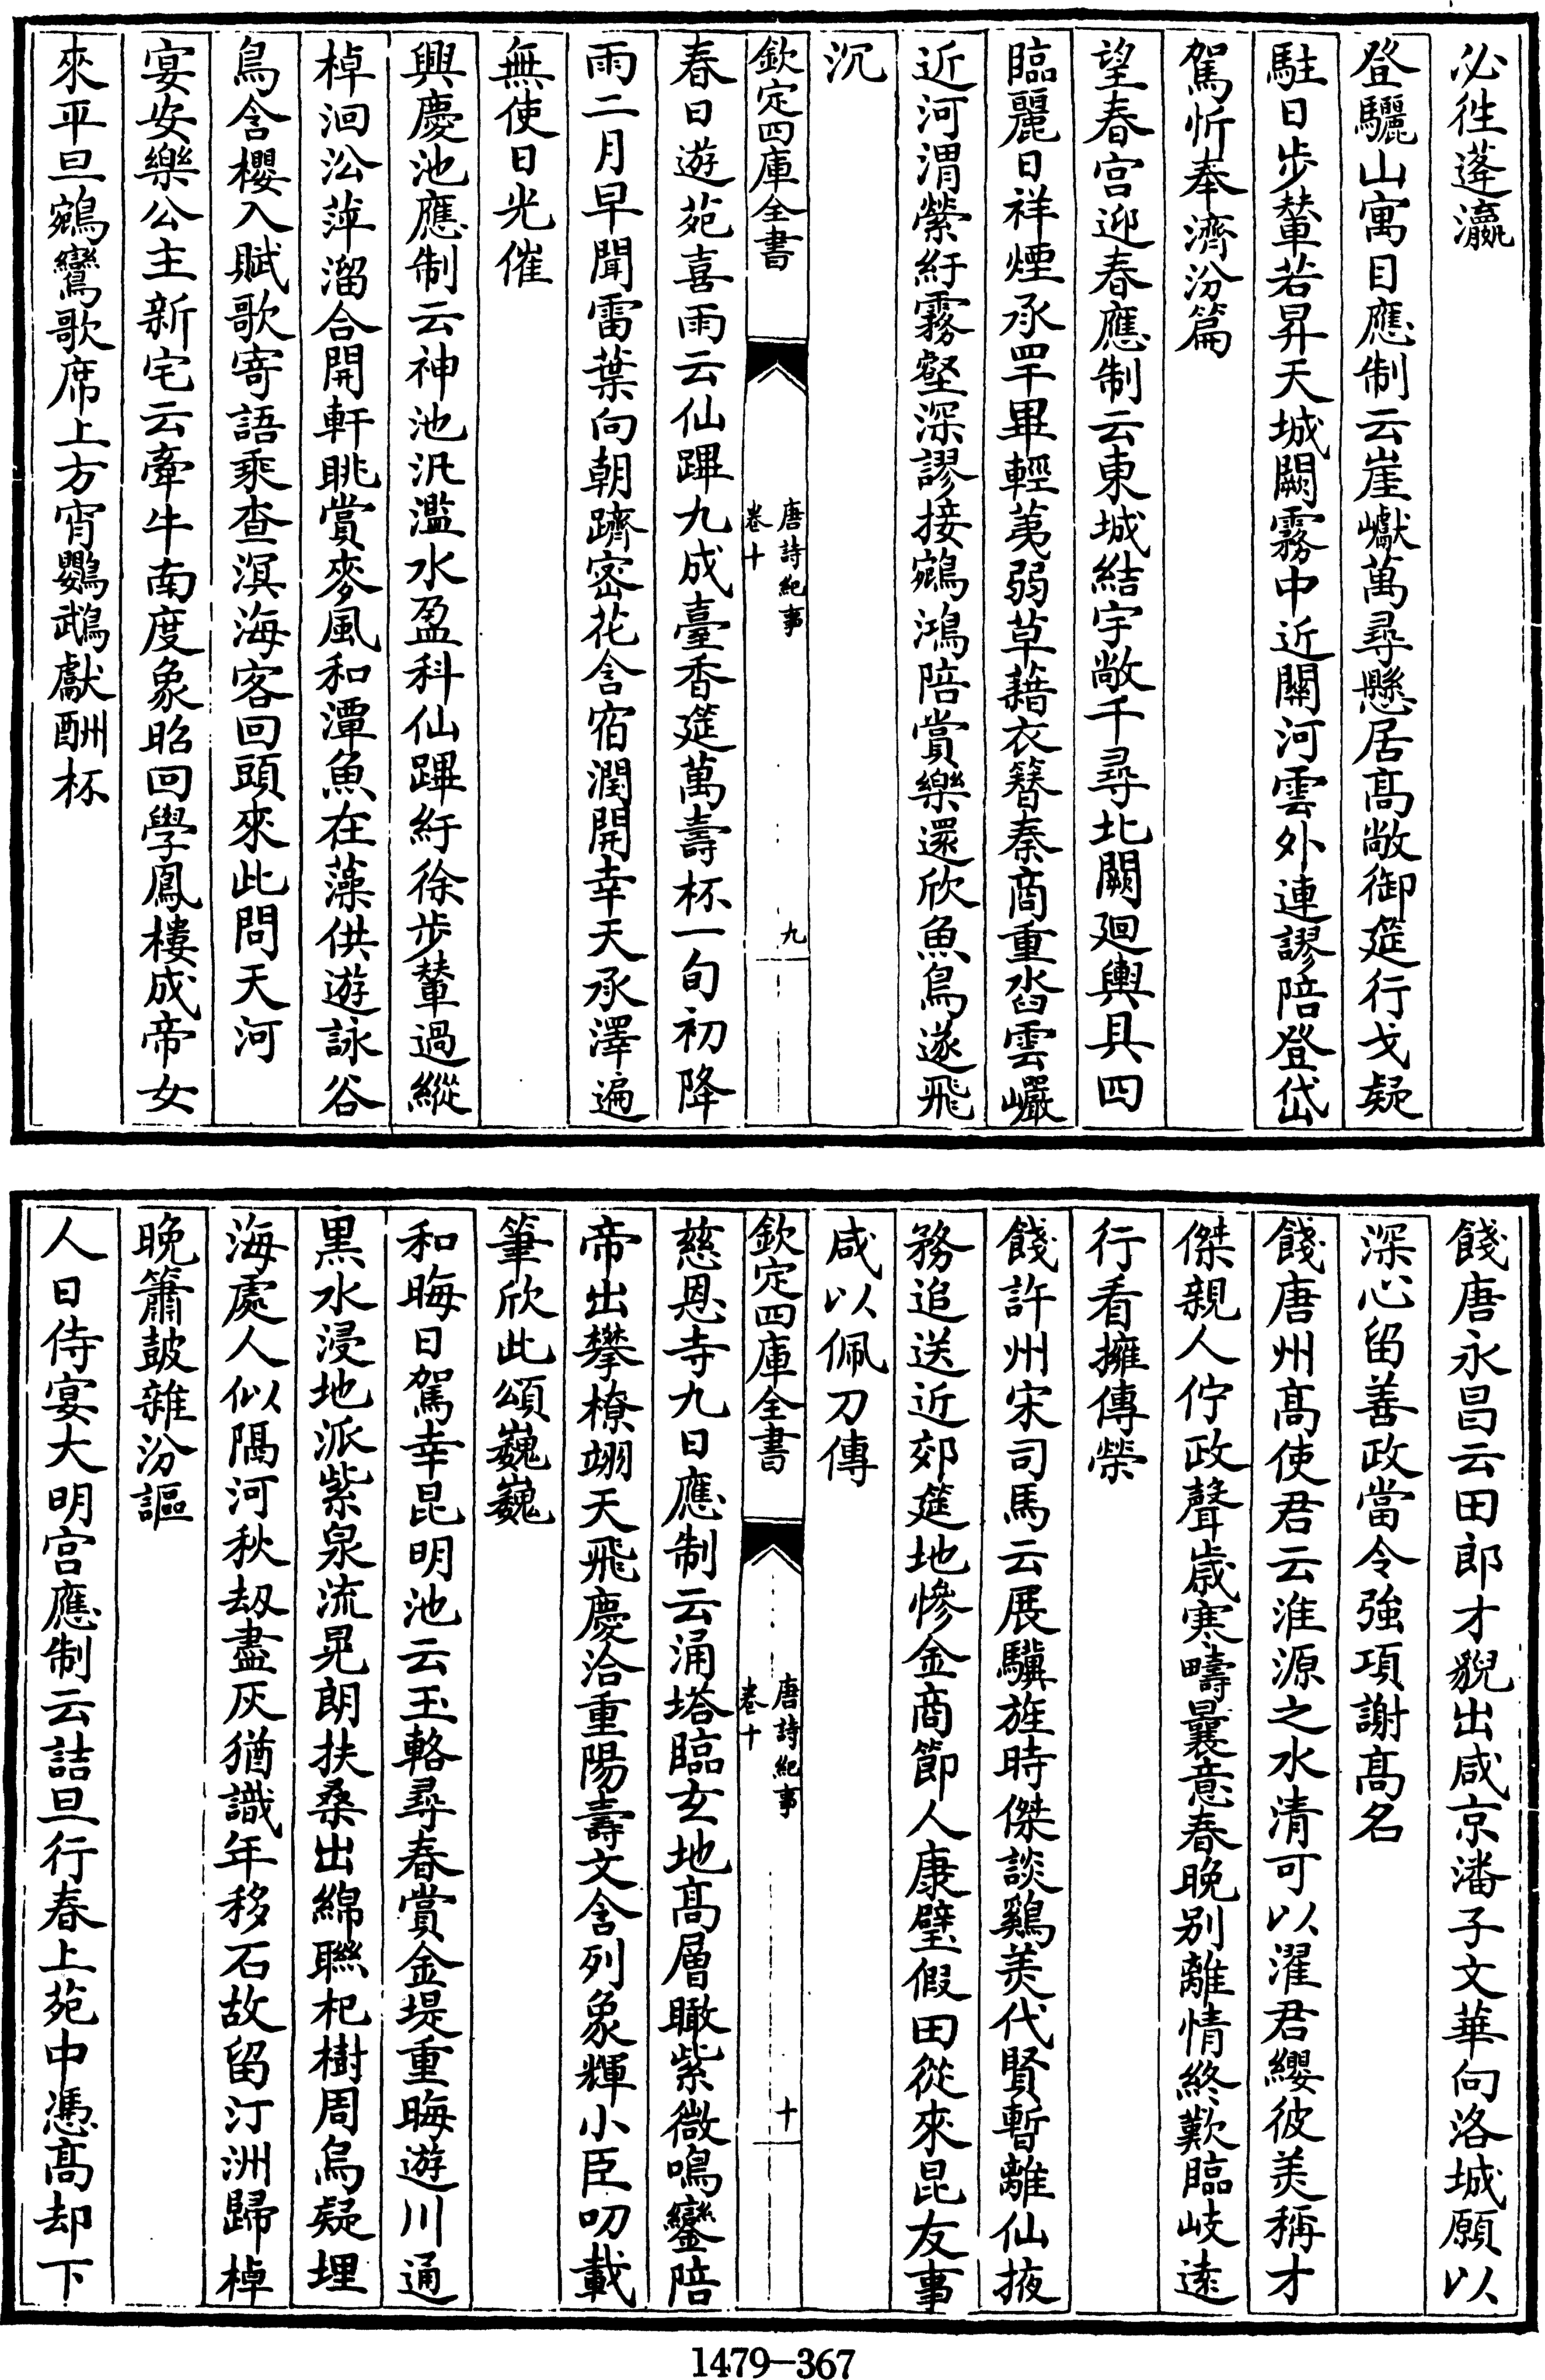 必徃蓬瀛
登驪山寓目應制云崖巘萬尋懸居髙敞御筵行戈疑
駐日步輦若昇天城闕霧中近闗河雲外連謬陪登岱
駕忻奉濟汾篇
望春宫迎春應制云東城結宇敞千尋北闕廻輿具四
臨麗日祥煙承罕畢輕荑弱草藉衣簪秦商重沓雲巖
近河渭縈紆霧壑深謬接鵷鴻陪賞樂還欣魚鳥遂飛
沉
欽定四庫全書
唐詩紀事
卷十
九
春日遊苑喜雨云仙蹕九成臺香筵萬壽杯一旬初降
雨二月早聞雷葉向朝躋密花含宿潤開幸天承澤遍
無使日光催
興慶池應制云神池汎濫水盈科仙蹕紆徐步輦過縱
棹洄㳂萍溜合開軒眺賞麥風和潭魚在藻供遊詠谷
鳥含櫻入賦歌寄語乘查溟海客回頭來此問天河
宴安樂公主新宅云牽牛南度象昭回學鳳樓成帝女
來平旦鵷鸞歌席上方宵鸚鵡獻酬杯
餞唐永昌云田郎才貌出咸京潘子文華向洛城願以
深心留善政當令強項謝髙名
餞唐州髙使君云淮源之水清可以濯君纓彼美稱才
傑親人佇政聲歳寒疇曩意春晚别離情終歎臨岐逺
行看擁傳榮
餞許州宋司馬云展驥旌時傑談鷄美代賢暫離仙掖
務追送近郊筵地慘金商節人康璧假田從來昆友事
咸以佩刀傳
欽定四庫全書
唐詩紀事
卷十
十
慈恩寺九日應制云涌塔臨玄地髙層瞰紫微鳴鑾陪
帝出攀橑翊天飛慶洽重陽壽文含列象輝小臣叨載
筆欣此頌巍巍
和晦日駕幸昆明池云玉輅尋春賞金堤重晦遊川通
黒水浸地派紫泉流晃朗扶桑出綿聯杞樹周烏疑埋
海處人似隔河秋刼盡灰猶識年移石故留汀洲歸棹
晚簫鼓雜汾謳
人日侍宴大明宫應制云詰旦行春上苑中憑髙却下
1479—367